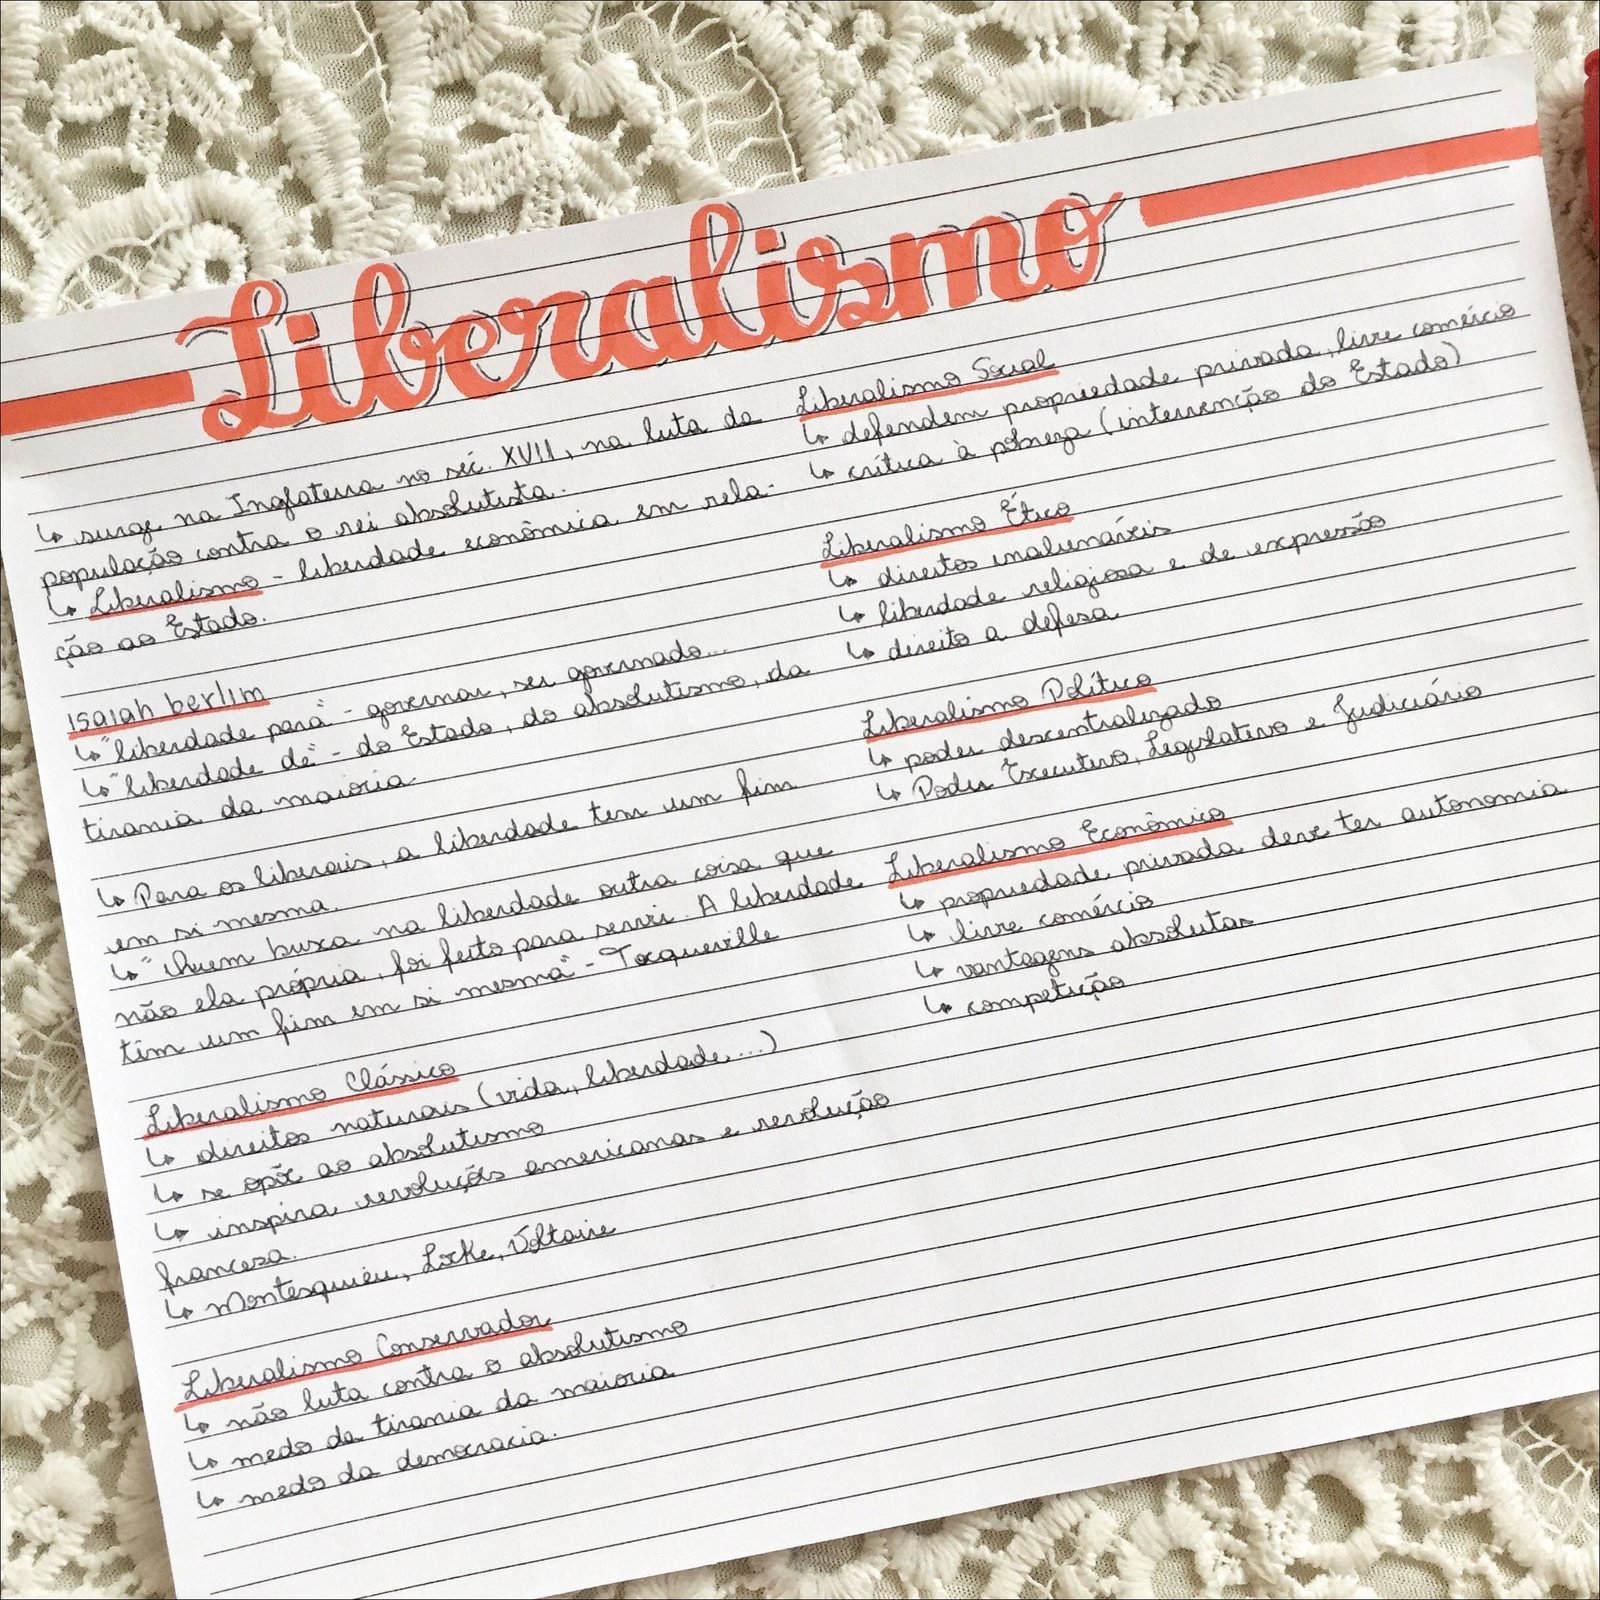 Liberalismo
↳ surge na Inglaterra no séc. XVII, na luta da
população contra o rei absolutista.
↳ Liberalismo - liberdade econômica em rela-
ção ao Estado.
Isaiah berlim
↳ "liberdade para" - governar, ser governado...
↳ "liberdade de" - do Estado, do absolutismo, da
tirania da maioria.
↳ Para os liberais, a liberdade tem um fim
em si mesma.
↳ "Quem busca na liberdade outra coisa que
não ela própria, foi feito para servir. A liberdade
têm um fim em si mesma" - Tocqueville
Liberalismo Clássico
↳ direitos naturais (vida, liberdade, ...)
↳ se opõe ao absolutismo
↳ inspira revoluções americanas e revolução
francesa.
↳ Montesquieu, Locke, Voltaire
Liberalismo Conservador
↳ não luta contra o absolutismo
↳ medo da tirania da maioria
↳ medo da democracia.
Liberalismo Social
↳ defendem propriedade privada, livre comércio
↳ crítica à pobreza (intervenção do Estado)
Liberalismo Ético
↳ direitos inalienáveis
↳ liberdade religiosa e de expressão
↳ direito a defesa
Liberalismo Político
↳ poder descentralizado
↳ Poder Executivo, Legislativo e Judiciário
Liberalismo Econômico
↳ propriedade privada deve ter autonomia
↳ livre comércio
↳ vantagens absolutas
↳ competição